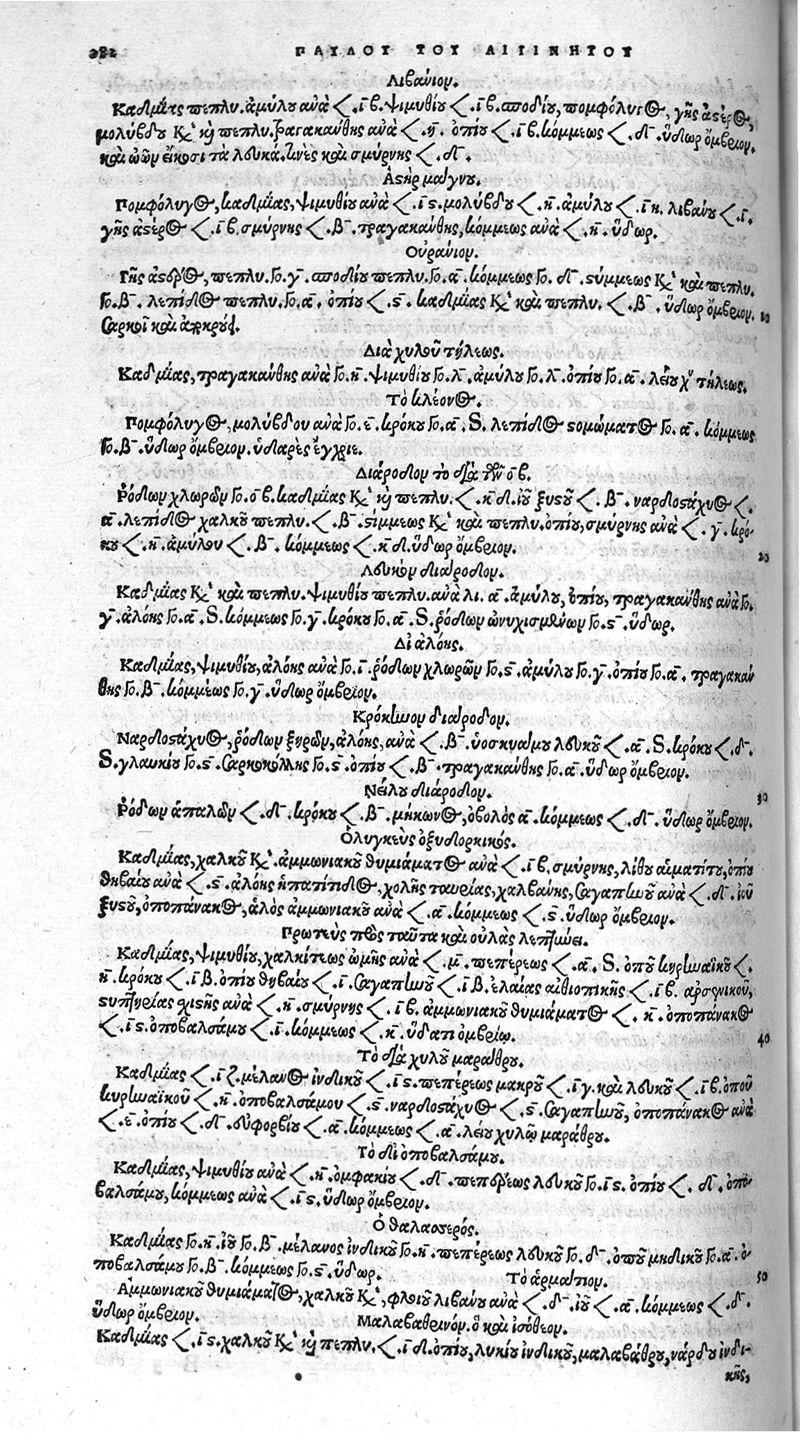 282 ΠΑΥΛΟΥ ΤΟΥ ΑΙΓΙΝΗΤΟΥ
Λιβάνιον.
Καδμίας πεπλυ. ἀμύλου ἀνὰ <. ιβ. ψιμυθίου <. ιβ. σποδίου, πομφόλυγος, γῆς ἀστέρος,
μολύβδου κκ καὶ πεπλυ. τραγακάνθης ἀνὰ <. η. ὀπίου <. ιβ. κόμμεως <. δ. ὕδωρ ὄμβριον.
καὶ ὠῶν εἴκοσι τὰ λευκά. τινὲς καὶ σμύρνης <. δ.
Ἀστὴρ μάγνου.
Πομφόλυγος, καδμίας, ψιμυθίου ἀνὰ <. ις. μολύβδου <. η. ἀμύλου <. ιη. λιβάνου <. ι.
γῆς ἀστέρος <. ιβ. σμύρνης <. β. τραγακάνθης, κόμμεως ἀνὰ <. η. ὕδωρ.
Οὐράνιον.
Γῆς ἀστέρος, πεπλυ. γο. γ. σποδίου πεπλυ. γο. α. κόμμεως γο. δ. στίμμεως κκ καὶ πεπλυ.
γο. β. λεπίδος πεπλυ. γο. α. ὀπίου <. ς. καδμίας κκ καὶ πεπλυ. <. β. ὕδωρ ὄμβριον. 10
Διὰ χυλοῦ τήλεως.
Καδμίας, τραγακάνθης ἀνὰ γο. η. ψιμυθίου γο. λ. ἀμύλου γο. λ. ὀπίου γο. α. λείου χυ τήλεως.
Τὸ κλέονος.
Πομφόλυγος, μολύβδου ἀνὰ γο. ε. κρόκου γο. α. S. λεπίδος στομώματος γο. α. κόμμεως
γο. β. ὕδωρ ὄμβριον. ὑδαρὲς ἔγχριε.
Διάροδον τὸ διὰ τῶν οβ.
Ῥόδων χλωρῶν γο. οβ. καδμίας κκ καὶ πεπλυ. <. κδ. ἰοῦ ξυστοῦ <. β. ναρδοστάχυος <.
α. λεπίδος χαλκοῦ πεπλυ. <. β. στίμμεως κκ καὶ πεπλυ. ὀπίου, σμύρνης ἀνὰ <. γ. κρό-
κου <. η. ἀμύλου <. β. κόμμεως <. κδ. ὕδωρ ὄμβριον. 20
Λευκὸν διάροδον.
Καδμίας κκ καὶ πεπλυ. ψιμυθίου πεπλυ. ἀνὰ λι. α. ἀμύλου, ὀπίου, τραγακάνθης ἀνὰ γο.
γ. ἀλόης γο. α. S. κόμμεως γο. γ. κρόκου γο. α. S. ῥόδων ὠνυχισμένων γο. ς. ὕδωρ.
Δι ἀλόης.
Καδμίας, ψιμυθίου, ἀλόης ἀνὰ γο. ι. ῥόδων χλωρῶν γο. ς. ἀμύλου γο. γ. ὀπίου γο. α. τραγακάν
θης γο. β. κόμμεως γο. γ. ὕδωρ ὄμβριον.
Κρόκινον διάροδον.
Ναρδοστάχυος, ῥόδων ξηρῶν, ἀλόης, ἀνὰ <. β. ὑοσκυάμου λευκοῦ <. α. S. κρόκου <. δ.
S. γλαυκίου γο. ς. σαρκοκόλλης γο. ς. ὀπίου <. β. τραγακάνθης γο. α. ὕδωρ ὄμβριον.
Νείλου διάροδον. 30
Ῥόδων ἁπαλῶν <. δ. κρόκου <. β. μήκωνος, ὀβολὸς α. κόμμεως <. δ. ὕδωρ ὄμβριον.
Ὁ λυγκεὺς ὀξυδορκικός.
Καδμίας, χαλκοῦ κκ. ἀμμωνιακοῦ θυμιάματος ἀνὰ <. ιβ. σμύρνης, λίθου αἱματίτου, ὀπίου
θηβαίου ἀνὰ <. ς. ἀλόης ἡπατίτιδος, χολῆς ταυρείας, χαλβάνης, σαγαπηνοῦ ἀνὰ <. δ. ἰοῦ
ξυστοῦ, ὀποπάνακος, ἁλὸς ἀμμωνιακοῦ ἀνὰ <. α. κόμμεως <. ς. ὕδωρ ὄμβριον.
Πρωτεὺς πρὸς ταῦτα καὶ οὐλὰς λεπτύνει.
Καδμίας, ψιμυθίου, χαλκίτεως ὠμῆς ἀνὰ <. μ. πεπέρεως <. α. S. ὀποῦ κυρηναϊκοῦ <.
η. κρόκου <. ιβ. ὀπίου θηβαίου <. ι. σαγαπηνοῦ <. ιβ. ἐλαίας αἰθιοπικῆς <. ιβ. ἀρσενικοῦ,
στυπτηρίας σχιστῆς ἀνὰ <. η. σμύρνης <. ιβ. ἀμμωνιακοῦ θυμιάματος <. η. ὀποπάνακος
<. ις. ὀποβαλσάμου <. ι. κόμμεως <. κ. ὕδατι ὀμβρίῳ. 40
Τὸ διὰ χυλοῦ μαράθρου.
Καδμίας <. ιζ. μέλανος ἰνδικοῦ <. ις. πεπέρεως μακροῦ <. ιγ. καὶ λευκοῦ <. ιβ. ὀποῦ
κυρηναϊκοῦ <. η. ὀποβαλσάμου <. ς. ναρδοστάχυος <. ς. σαγαπηνοῦ, ὀποπάνακος ἀνὰ
<. ε. ὀπίου <. δ. εὐφορβίου <. α. κόμμεως <. α. λείου χυλῷ μαράθρου.
Τὸ δι ὀποβαλσάμου.
Καδμίας, ψιμυθίου ἀνὰ <. η. ὀμφακίου <. δ. πεπέρεως λευκοῦ γο. ις. ὀπίου <. δ. ὀπο-
βαλσάμου, κόμμεως ἀνὰ <. ις. ὕδωρ ὄμβριον.
Ὁ θαλασσερός.
Καδμίας γο. η. ἰοῦ γο. β. μέλανος ἰνδικοῦ γο. η. πεπέρεως λευκοῦ γο. δ. ὀποῦ μηδικοῦ γο. α. ὀ-
ποβαλσάμου γο. β. κόμμεως γο. ς. ὕδωρ. Τὸ ἁρμάτιον. 50
Ἀμμωνιακοῦ θυμιάματος, χαλκοῦ κκ, φλοιοῦ λιβάνου ἀνὰ <. δ. ἰοῦ <. α. κόμμεως <. δ.
ὕδωρ ὄμβριον. Μαλαβάθρινον, ὃ καὶ ἰσόθεον.
Καδμίας <. ις. χαλκοῦ κκ καὶ πεπλυ. <. ιδ. ὀπίου, λυκίου ἰνδικοῦ, μαλαβάθρου, νάρδου ἰνδι-
κῆς,